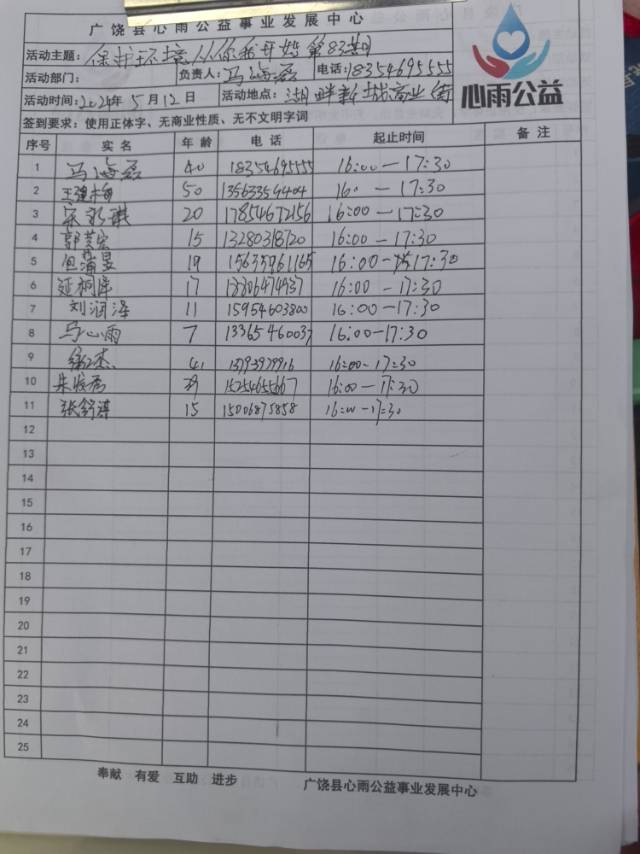 广饶县心雨公益事业发展中心
活动主题：保护环境从你我开始第83期
活动部门： 负责人：马海磊 电话：18354695555
活动时间：2024年5月12日 活动地点：湖畔新城商业街
心雨公益
签到要求：使用正体字、无商业性质、无不文明字词
序号 实名 年龄 电话 起止时间 备注
1 马海磊 40 18354695555 16:00—17:30
2 50 13563354404 —17:30
3 20 17854672156 16:00—17:30
4 15 13280318720 16:00—17:30
5 19 15635961165 16:00—17:30
6 17 16:00—17:30
7 刘润泽 11 15954603800 16:00—17:30
8 马心雨 7 13365460037 16:00—17:30
9 41 16:00-17:30
10 16:00—17:30
11 张舒淇 15 15006875858 17:30
12
13
14
15
16
17
18
19
20
21
22
23
24
25
奉献 有爱 互助 进步 广饶县心雨公益事业发展中心